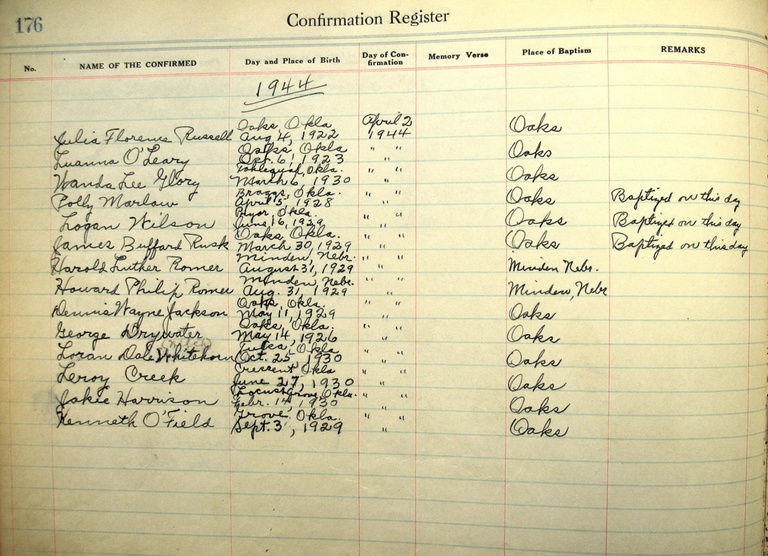 176
Confirmation Register
No. NAME OF THE CONFIRMED Day and Place of Birth Day of Con-firmation Memory Verse Place of Baptism REMARKS
1944
Oaks, Okla April 2
Julia Florence Russell Aug 4, 1922 1944 Oaks
Oaks, Okla " "
Luanna O'Leary 6, 1923 " Oaks
Tahlequah, Okla. " "
Wanda Lee Glory March 6, 1930 " Oaks
Braggs, Okla. " "
Polly Marlow April 5, 1928 " Oaks Baptized on this day
Pryor, Okla. " "
Logan Wilson June 16, 1929 " Oaks Baptized on this day
Oaks, Okla. " "
James Buffard Rusk March 30, 1929 " Oaks Baptized on this day
Minden, Nebr. " "
Harold Luther Romer August 31, 1929 " Minden Nebr.
Minden, Nebr. " "
Howard Philip Romer Aug. 31, 1929 " Minden, Nebr
Oaks, Okla. " "
Dennis Wayne Jackson May 11, 1929 " Oaks
Oaks, Okla. " "
George Drywater May 14, 1926 " Oaks
Tulsa, Okla " "
Loran Dale Whitehorn Oct. 25, 1930 " Oaks
Crescent Okla " "
Leroy Creek June 27, 1930 " Oaks
Locust Grove, Okla. " "
Jakie Harrison Febr. 14, 1930 " Oaks
Grove, Okla. " "
Kenneth O'Field Sept. 3, 1929 " Oaks